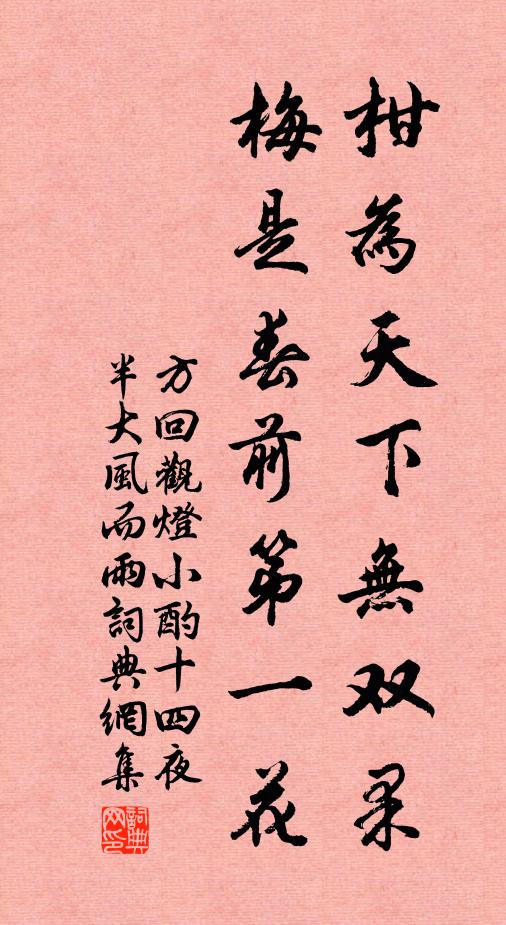 柑為天下無双果
梅是春前第一花
方回觀燈小酌十四夜
半大風而雨詞典網集
詞典
网印